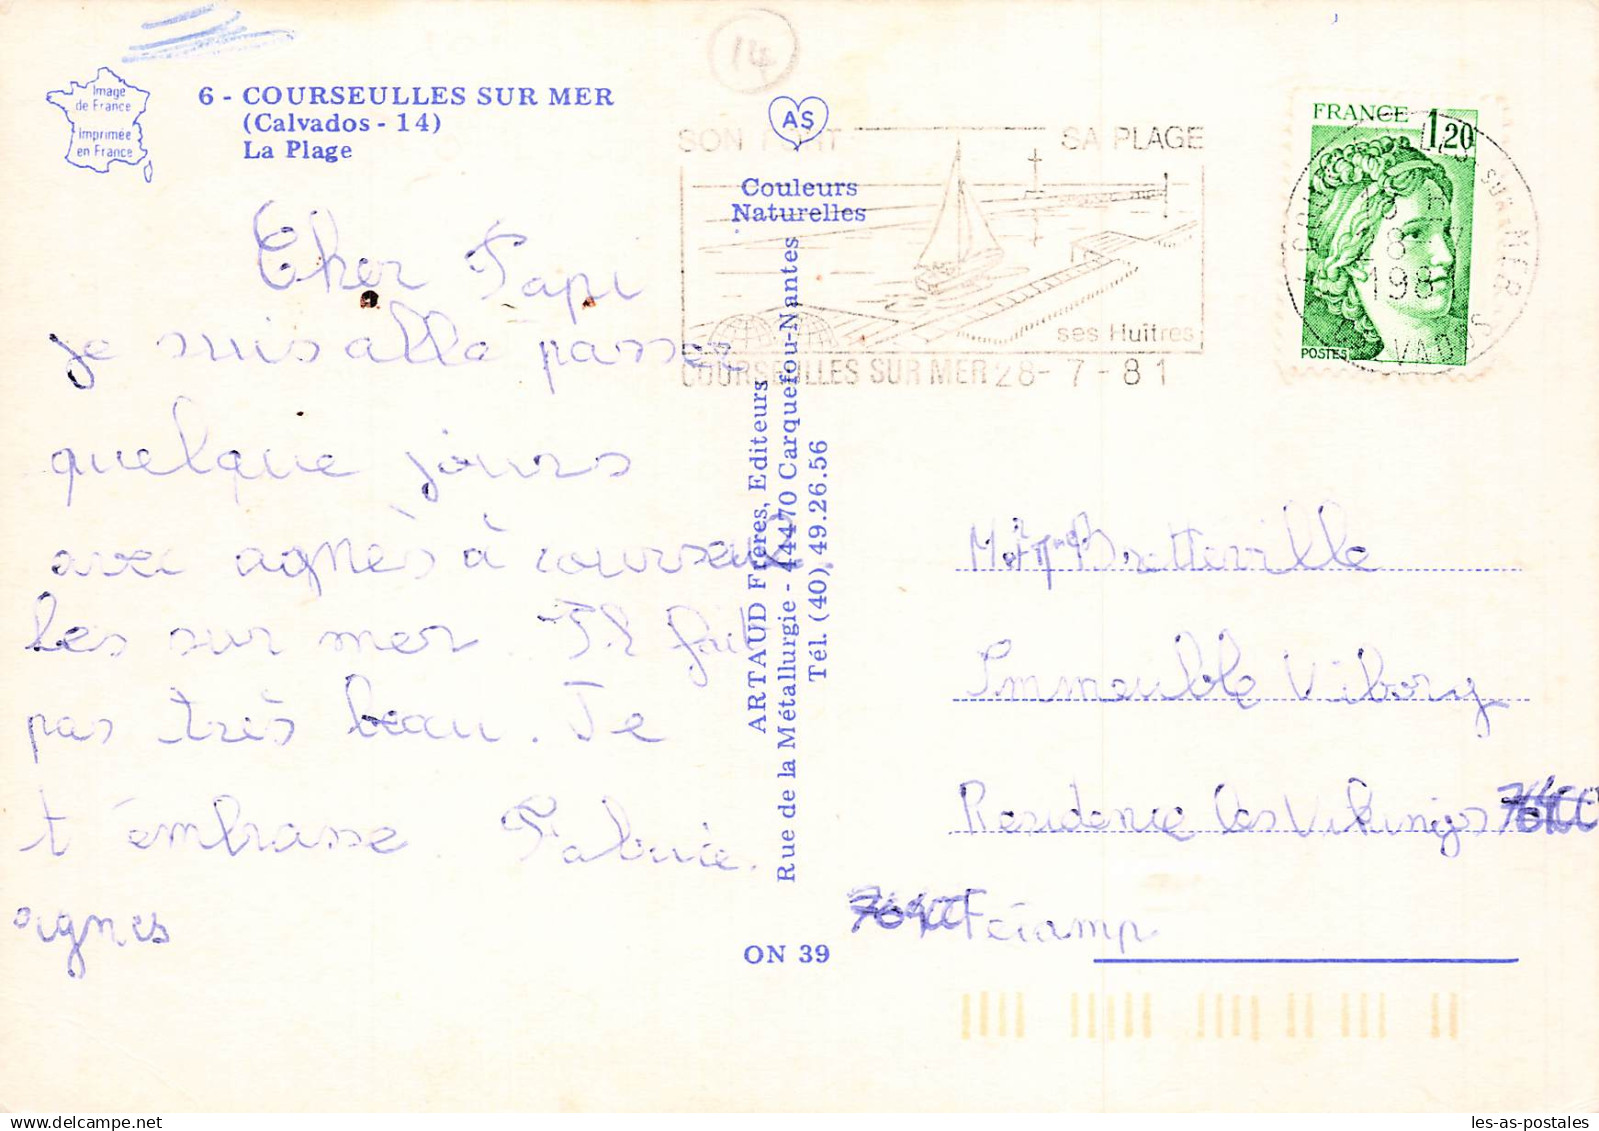 14
Image
de France
imprimée
en France
6 - COURSEULLES SUR MER
(Calvados - 14)
La Plage
AS
Couleurs
Naturelles
SON PORT
SA PLAGE
ses Huîtres
COURSEULLES SUR MER 28-7-81
FRANCE 1,20
POSTES
Cher Papi
je suis allé passer
quelque jours
avec agnès à courseul
les sur mer. Il fait
pas très beau. Je
t'embrasse. Fabrice.
agnes
ARTAUD Frères, Editeurs
Rue de la Métallurgie - 44470 Carquefou-Nantes
Tél. (40) 49.26.56
ON 39
Bretteville
Immeuble Viborg
Residence les Vikings 76400
76400 Fécamp
les-as-postales